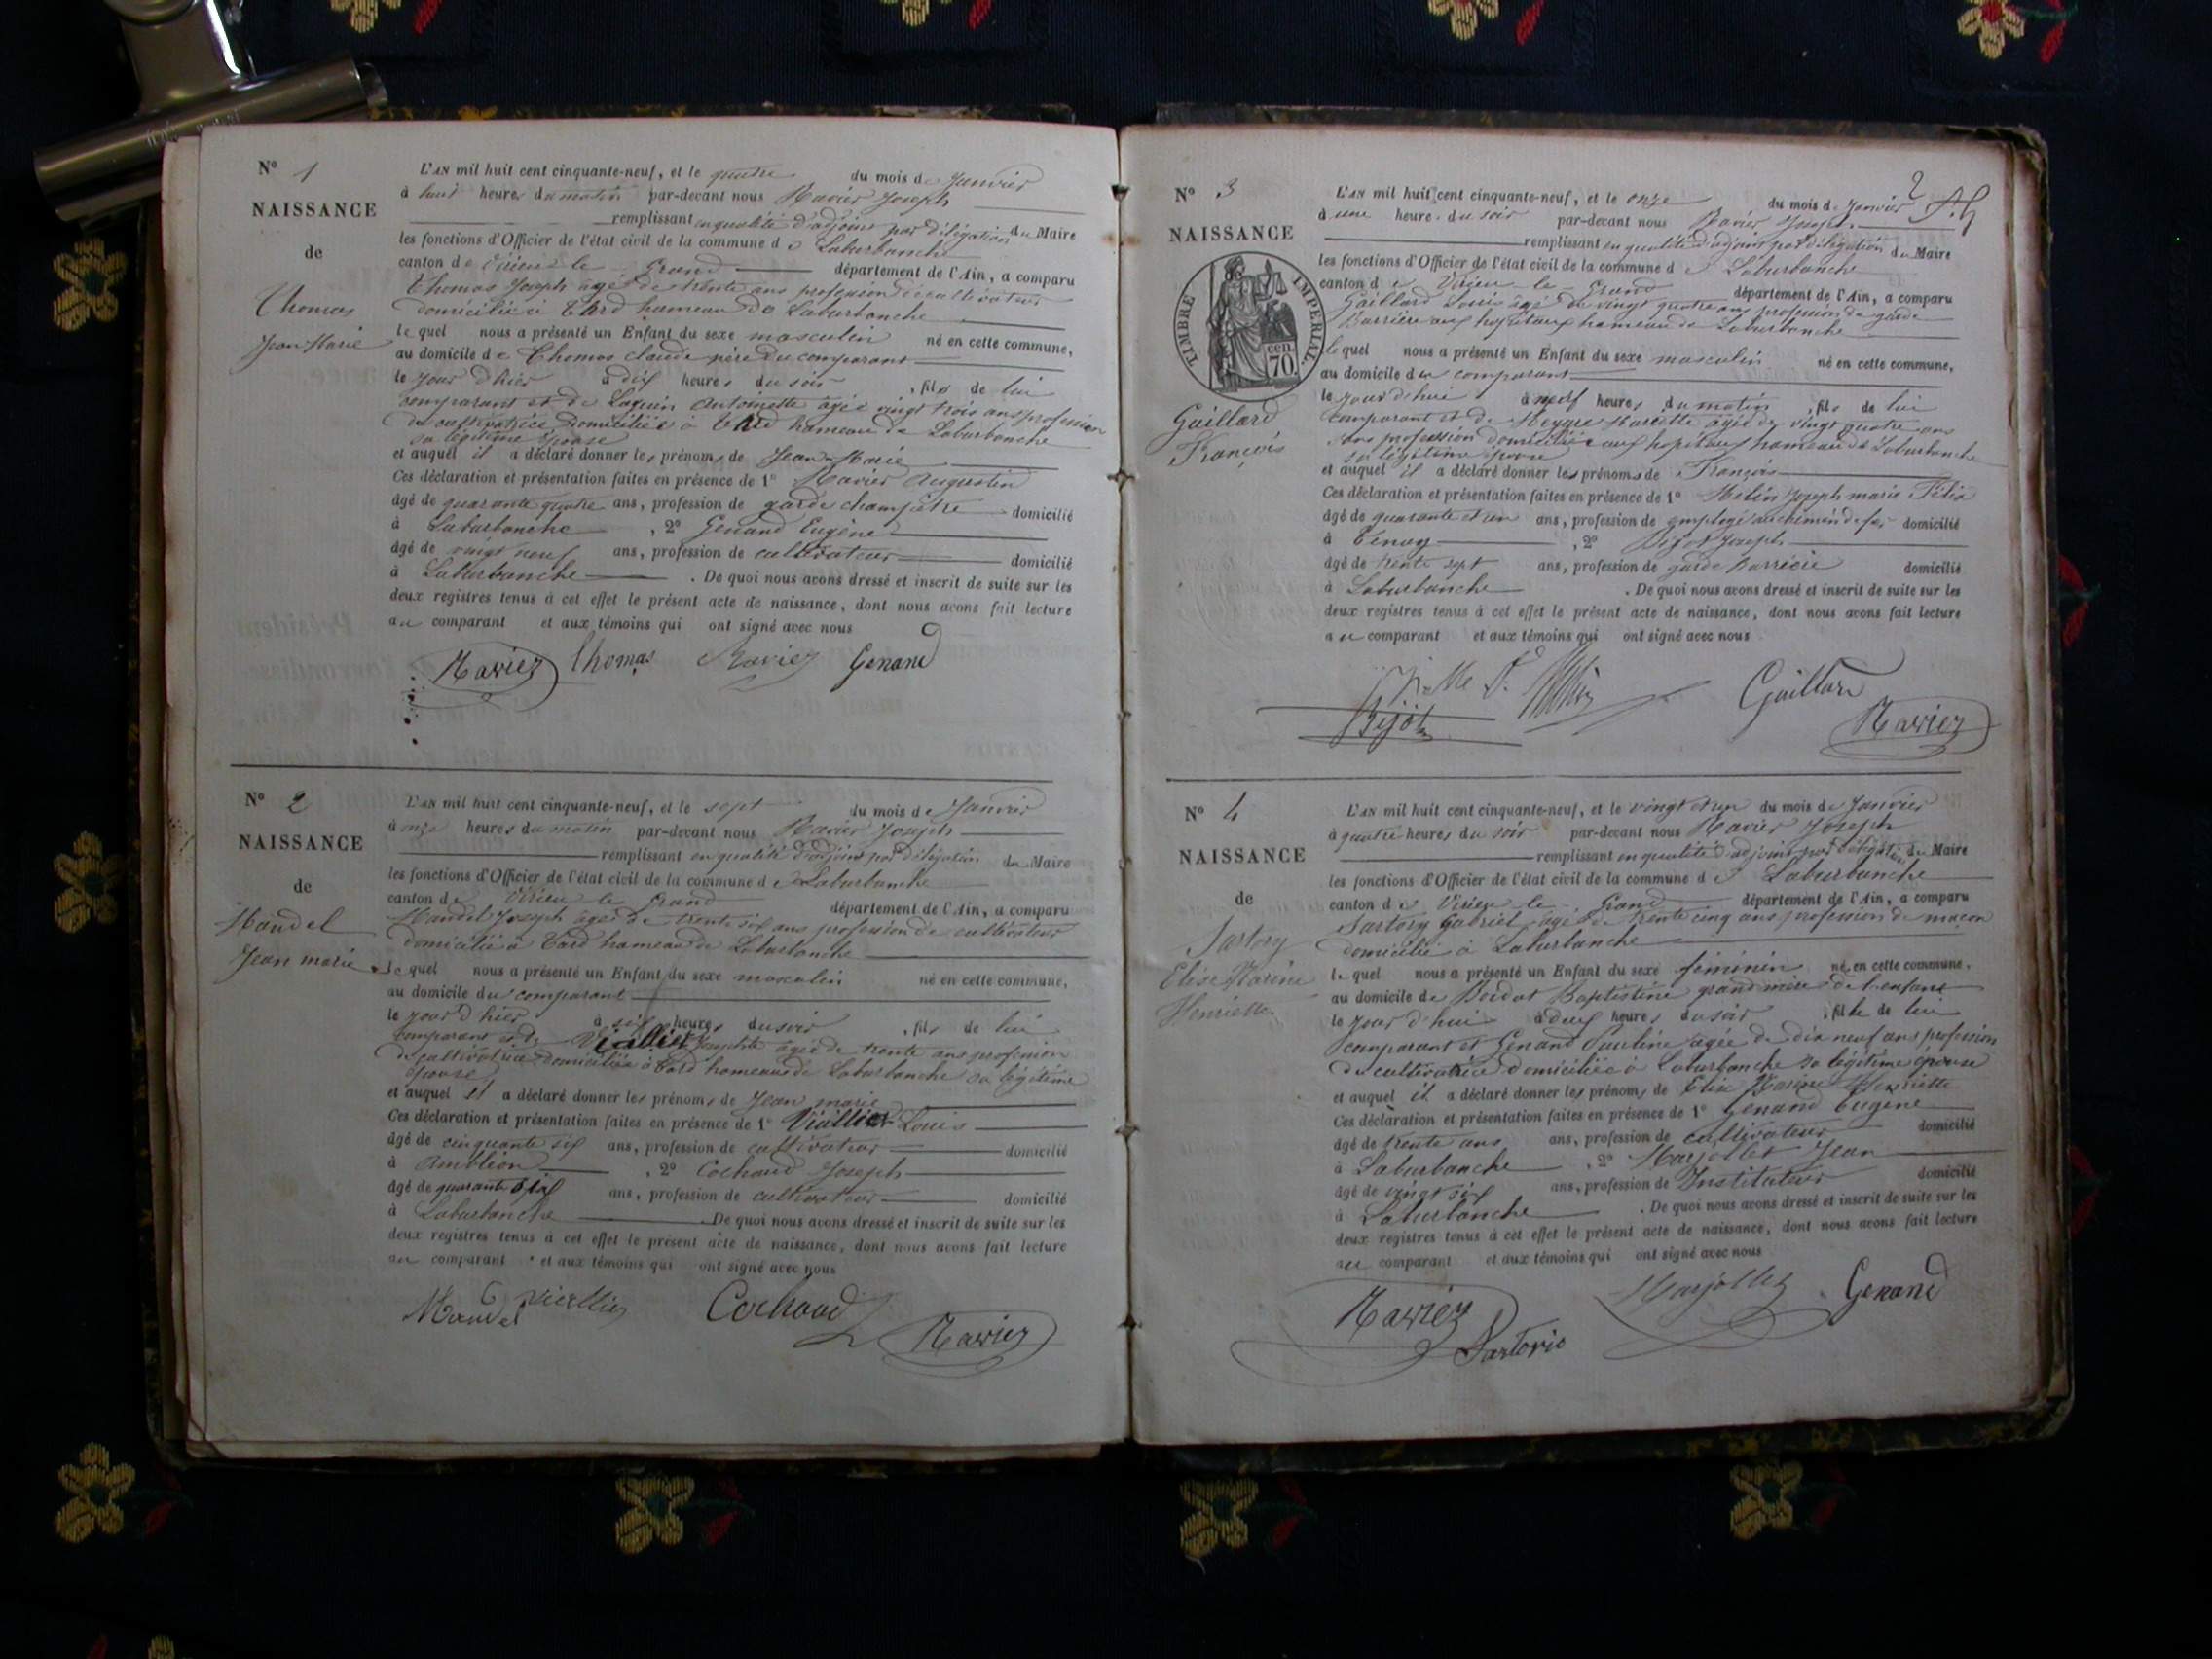 N° 1
NAISSANCE
de
Thomas
Jean Marie
L'AN mil huit cent cinquante-neuf, et le quatre du mois de Janvier
à huit heures du matin par-devant nous Ravier Joseph
remplissant en qualité d'adjoint par délégation du Maire
les fonctions d'Officier de l'état civil de la commune de Laburbanche
canton de Virieu le Grand département de l'Ain, a comparu
Thomas Joseph agé de trente ans profession de cultivateur
domicilié à hameau de Laburbanche
le quel nous a présenté un Enfant du sexe masculin né en cette commune,
au domicile de Thomas Claude père du comparant
le jour d'hier à dix heures du soir, fils de lui
comparant et de Antoinette agée vingt trois ans profession
de cultivatrice domiciliée à hameau de Laburbanche
sa légitime épouse
et auquel il a déclaré donner les prénoms de Jean-Marie
Ces déclaration et présentation faites en présence de 1° Ravier Augustin
âgé de quarante quatre ans, profession de garde champêtre domicilié
à Laburbanche, 2° Genand Eugène
âgé de vingt neuf ans, profession de cultivateur domicilié
à Laburbanche. De quoi nous avons dressé et inscrit de suite sur les
deux registres tenus à cet effet le présent acte de naissance, dont nous avons fait lecture
au comparant et aux témoins qui ont signé avec nous
Ravier Thomas Ravier Genand
N° 2
NAISSANCE
de
Mandel
Jean marie
L'AN mil huit cent cinquante-neuf, et le sept du mois de Janvier
à onze heures du matin par-devant nous Ravier Joseph
remplissant en qualité d'adjoint par délégation du Maire
les fonctions d'Officier de l'état civil de la commune de Laburbanche
canton de Virieu le Grand département de l'Ain, a comparu
Mandel Joseph agé de trente six ans profession de cultivateur
domicilié à hameau de Laburbanche
le quel nous a présenté un Enfant du sexe masculin né en cette commune,
au domicile du comparant
le jour d'hier à six heures du soir, fils de lui
comparant et de Viallier agée de trente ans profession
de cultivatrice domiciliée à hameau de Laburbanche sa légitime
épouse
et auquel il a déclaré donner les prénoms de Jean marie
Ces déclaration et présentation faites en présence de 1° Viallier Louis
âgé de cinquante six ans, profession de cultivateur domicilié
à Ambléon, 2° Cochaud Joseph
âgé de quarante six ans, profession de cultivateur domicilié
à Laburbanche De quoi nous avons dressé et inscrit de suite sur les
deux registres tenus à cet effet le présent acte de naissance, dont nous avons fait lecture
au comparant et aux témoins qui ont signé avec nous
Mandel Viallier Cochaud Ravier
2
N° 3
NAISSANCE
TIMBRE IMPERIAL
70 cen.
Gaillard
François
L'AN mil huit cent cinquante-neuf, et le onze du mois de Janvier
à une heure du soir par-devant nous Ravier Joseph
remplissant en qualité d'adjoint par délégation du Maire
les fonctions d'Officier de l'état civil de la commune de Laburbanche
canton de Virieu-le-Grand département de l'Ain, a comparu
Gaillard Louis agé de vingt quatre ans profession de garde
Barrière aux hopitaux hameau de Laburbanche
le quel nous a présenté un Enfant du sexe masculin né en cette commune,
au domicile du comparant
le jour d'hui à neuf heures du matin, fils de lui
comparant et de Mariette agée de vingt quatre ans
sans profession domiciliée aux hopitaux hameau de Laburbanche
sa légitime épouse
et auquel il a déclaré donner les prénoms de François
Ces déclaration et présentation faites en présence de 1° Joseph marie Félix
âgé de quarante et un ans, profession de employé au chemin de fer domicilié
à Tenay, 2° Bijot Joseph
âgé de trente sept ans, profession de garde barrière domicilié
à Laburbanche. De quoi nous avons dressé et inscrit de suite sur les
deux registres tenus à cet effet le présent acte de naissance, dont nous avons fait lecture
au comparant et aux témoins qui ont signé avec nous
Bijot Gaillard Ravier
N° 4
NAISSANCE
de
Sartory
Elise Marine
Henriette
L'AN mil huit cent cinquante-neuf, et le vingt et un du mois de Janvier
à quatre heures du soir par-devant nous Ravier Joseph
remplissant en qualité d'adjoint par délégation du Maire
les fonctions d'Officier de l'état civil de la commune de Laburbanche
canton de Virieu le Grand département de l'Ain, a comparu
Sartory Gabriel agé de trente cinq ans profession de maçon
domicilié à Laburbanche
le quel nous a présenté un Enfant du sexe féminin né en cette commune,
au domicile de Baptistine grand mère de l'enfant
le jour d'hui à deux heures du soir, fille de lui
comparant et Genand Pauline agée de dix neuf ans profession
de cultivatrice domiciliée à Laburbanche sa légitime épouse
et auquel il a déclaré donner les prénoms de Elise Marine Henriette
Ces déclaration et présentation faites en présence de 1° Genand Eugène
âgé de trente ans ans, profession de cultivateur domicilié
à Laburbanche, 2° Marjollet Jean
âgé de vingt six ans, profession de Instituteur domicilié
à Laburbanche. De quoi nous avons dressé et inscrit de suite sur les
deux registres tenus à cet effet le présent acte de naissance, dont nous avons fait lecture
au comparant et aux témoins qui ont signé avec nous
Ravier Sartorio Marjollet Genand